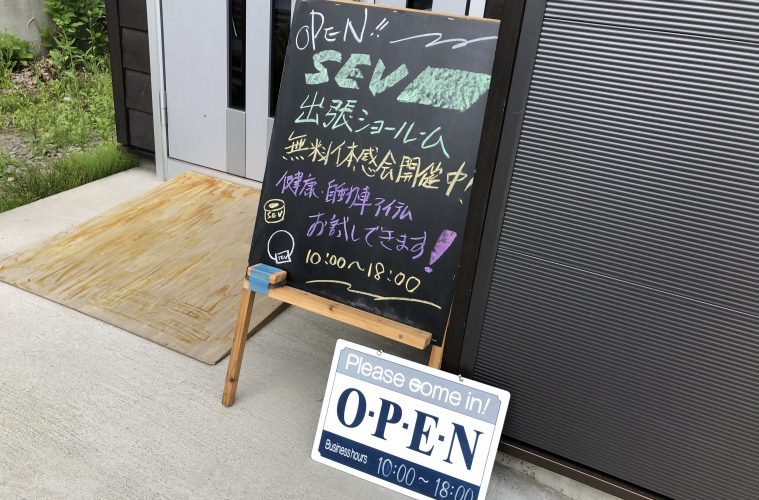 OPEN!!
SEV
出張ショールーム
無料体感会開催中!
健康・自動車アイテム
お試しできます!
SEV
SEV
10:00〜18:00
Please come in!
O·P·E·N
Business hours 10:00〜18:00